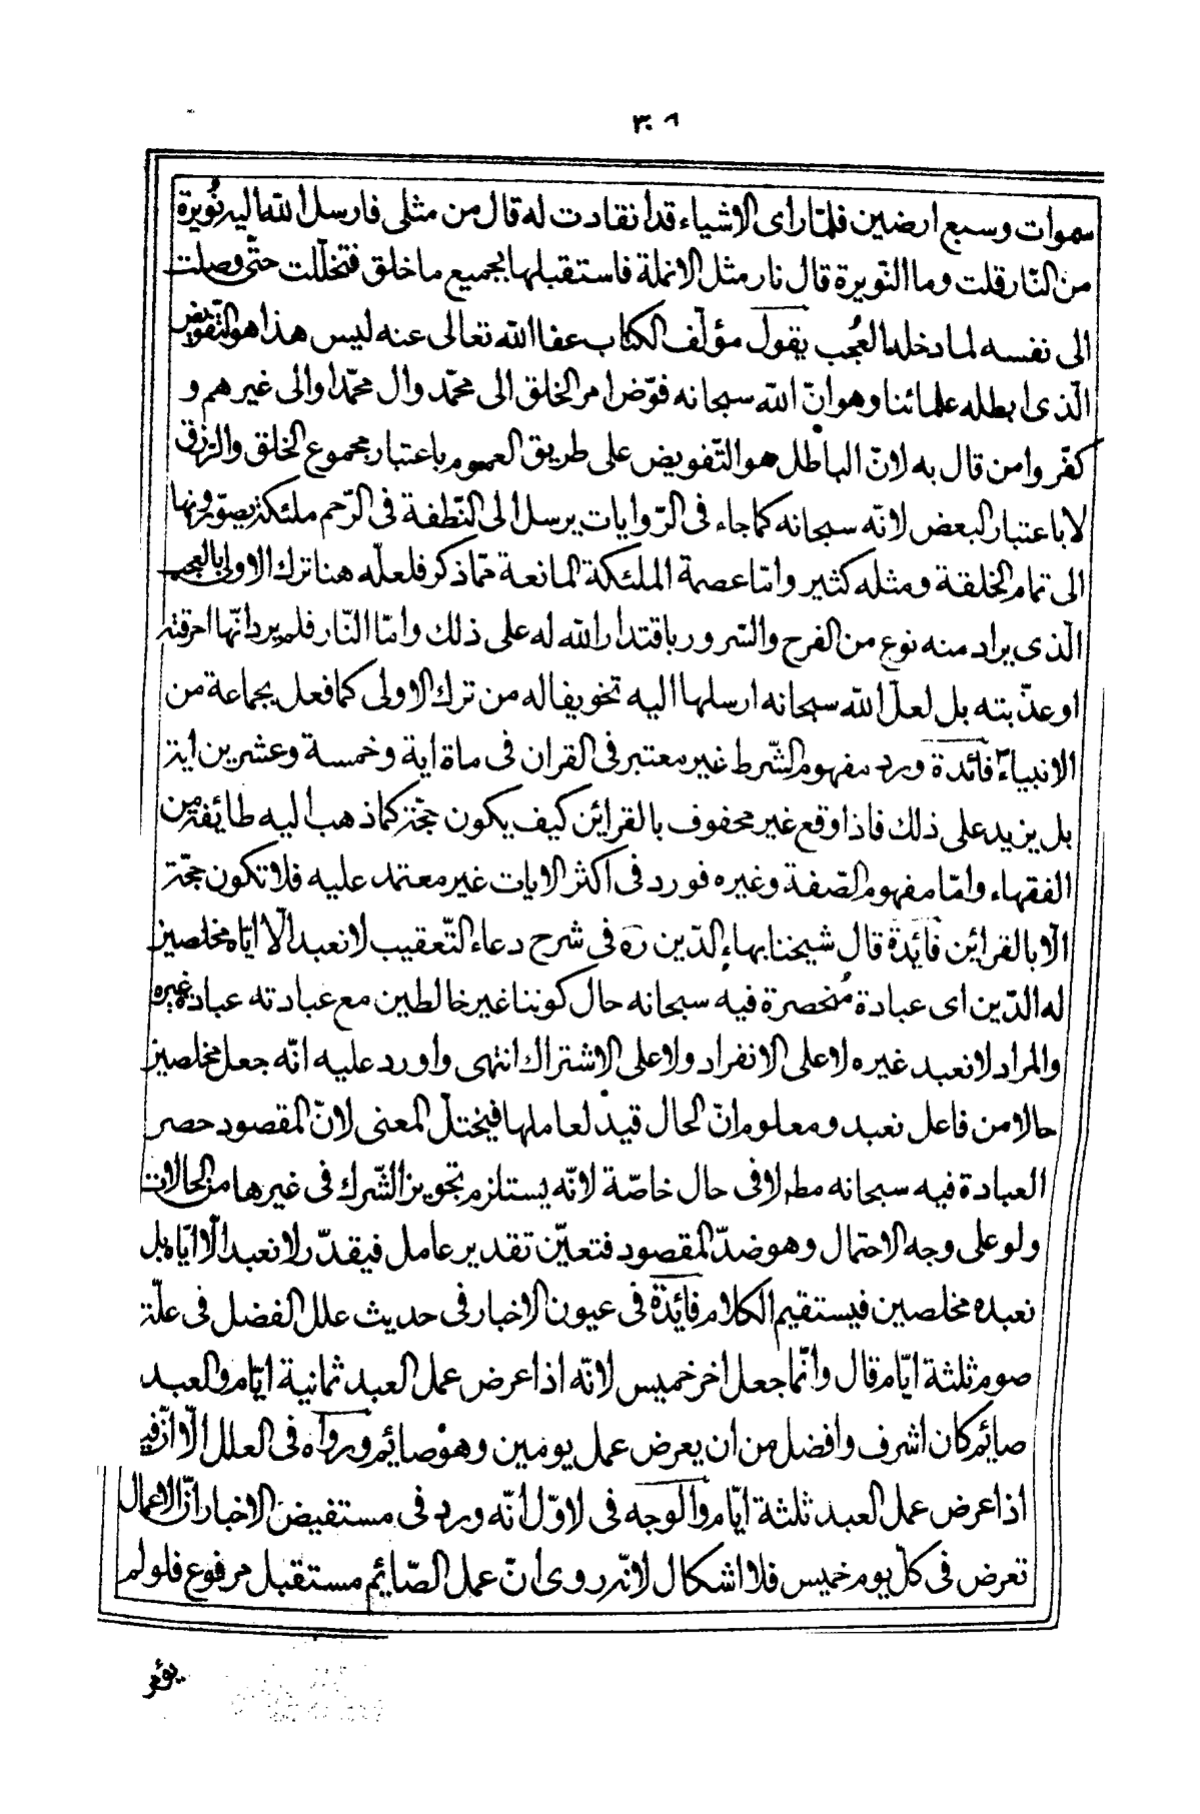 ٣٠٩
سموات وسبع ارضين فلمّا راى الاشياء قد انقادت له قال من مثلى فارسل الله اليه نُويرة
من النّار قلت وما النّويرة قال نار مثل الانملة فاستقبلها بجميع ما خلق فتخلّلت حتّى وصلت
الى نفسه لما دخله العُجب يقول مؤلّف الكتاب عفا الله تعالى عنه ليس هذا هو التّفويض
الّذى ابطله علمائنا وهو انّ الله سبحانه فوّض امر الخلق الى محمّد وال محمّد او الى غيرهم و
كفّروا من قال به لانّ الباطل هو التّفويض على طريق العموم باعتبار مجموع الخلق والرّزق
لا باعتبار البعض لانّه سبحانه كما جاء فى الرّوايات يرسل الى النّطفة فى الرّحم ملئكة يصوّرونها
الى تمام الخلقة ومثله كثير وامّا عصمة الملئكة المانعة ممّا ذكر فلعلّه هنا ترك الاولى بالعجب
الّذى يراد منه نوع من الفرح والسّرور باقتدار الله له على ذلك وامّا النّار فلم يرد انّها احرقته
او عذّبته بل لعلّ الله سبحانه ارسلها اليه تخويفا له من ترك الاولى كما فعل بجماعة من
الانبياء فائدة ورد مفهوم الشّرط غير معتبر فى القران فى ماة اية وخمسة وعشرين اية
بل يزيد على ذلك فاذا وقع غير محفوف بالقرائن كيف يكون حجّة كما ذهب اليه طائفة من
الفقهاء وامّا مفهوم الصّفة وغيره فورد فى اكثر الايات غير معتمد عليه فلا تكون حجّة
الّا بالقرائن فائدة قال شيخنا بهاء الدّين ره فى شرح دعاء التّعقيب لا نعبد الّا ايّاه مخلصين
له الدّين اى عبادة مُنحصرة فيه سبحانه حال كوننا غير خالطين مع عبادته عبادة غيره
والمراد لا نعبد غيره لا على الانفراد ولا على الاشتراك انتهى واورد عليه انّه جعل مخلصين
حالا من فاعل نعبد ومعلوم انّ الحال قيد لعاملها فيختلّ المعنى لانّ المقصود حصر
العبادة فيه سبحانه مطلا فى حال خاصّة لانّه يستلزم تجويز الشّرك فى غيرها من الحالات
ولو على وجه الاحتمال وهو ضدّ المقصود فتعيّن تقدير عامل فيقدّر لا نعبد الّا ايّاه بل
نعبده مخلصين فيستقيم الكلام فائدة فى عيون الاخبار فى حديث علل الفضل فى علّة
صوم ثلثة ايّام قال وانّما جعل اخر خميس لانّه اذا عرض عمل العبد ثمانية ايّام والعبد
صائم كان اشرف وافضل من ان يعرض عمل يومين وهو صائم ورواه فى العلل الّا انّ فيه
اذا عرض عمل العبد ثلثة ايّام والوجه فى الاوّل انّه ورد فى مستفيض الاخبار انّ الاعمال
تعرض فى كلّ يوم خميس فلا اشكال لانّه روى انّ عمل الصّائم مستقبل مرفوع فلو لم
يؤمر